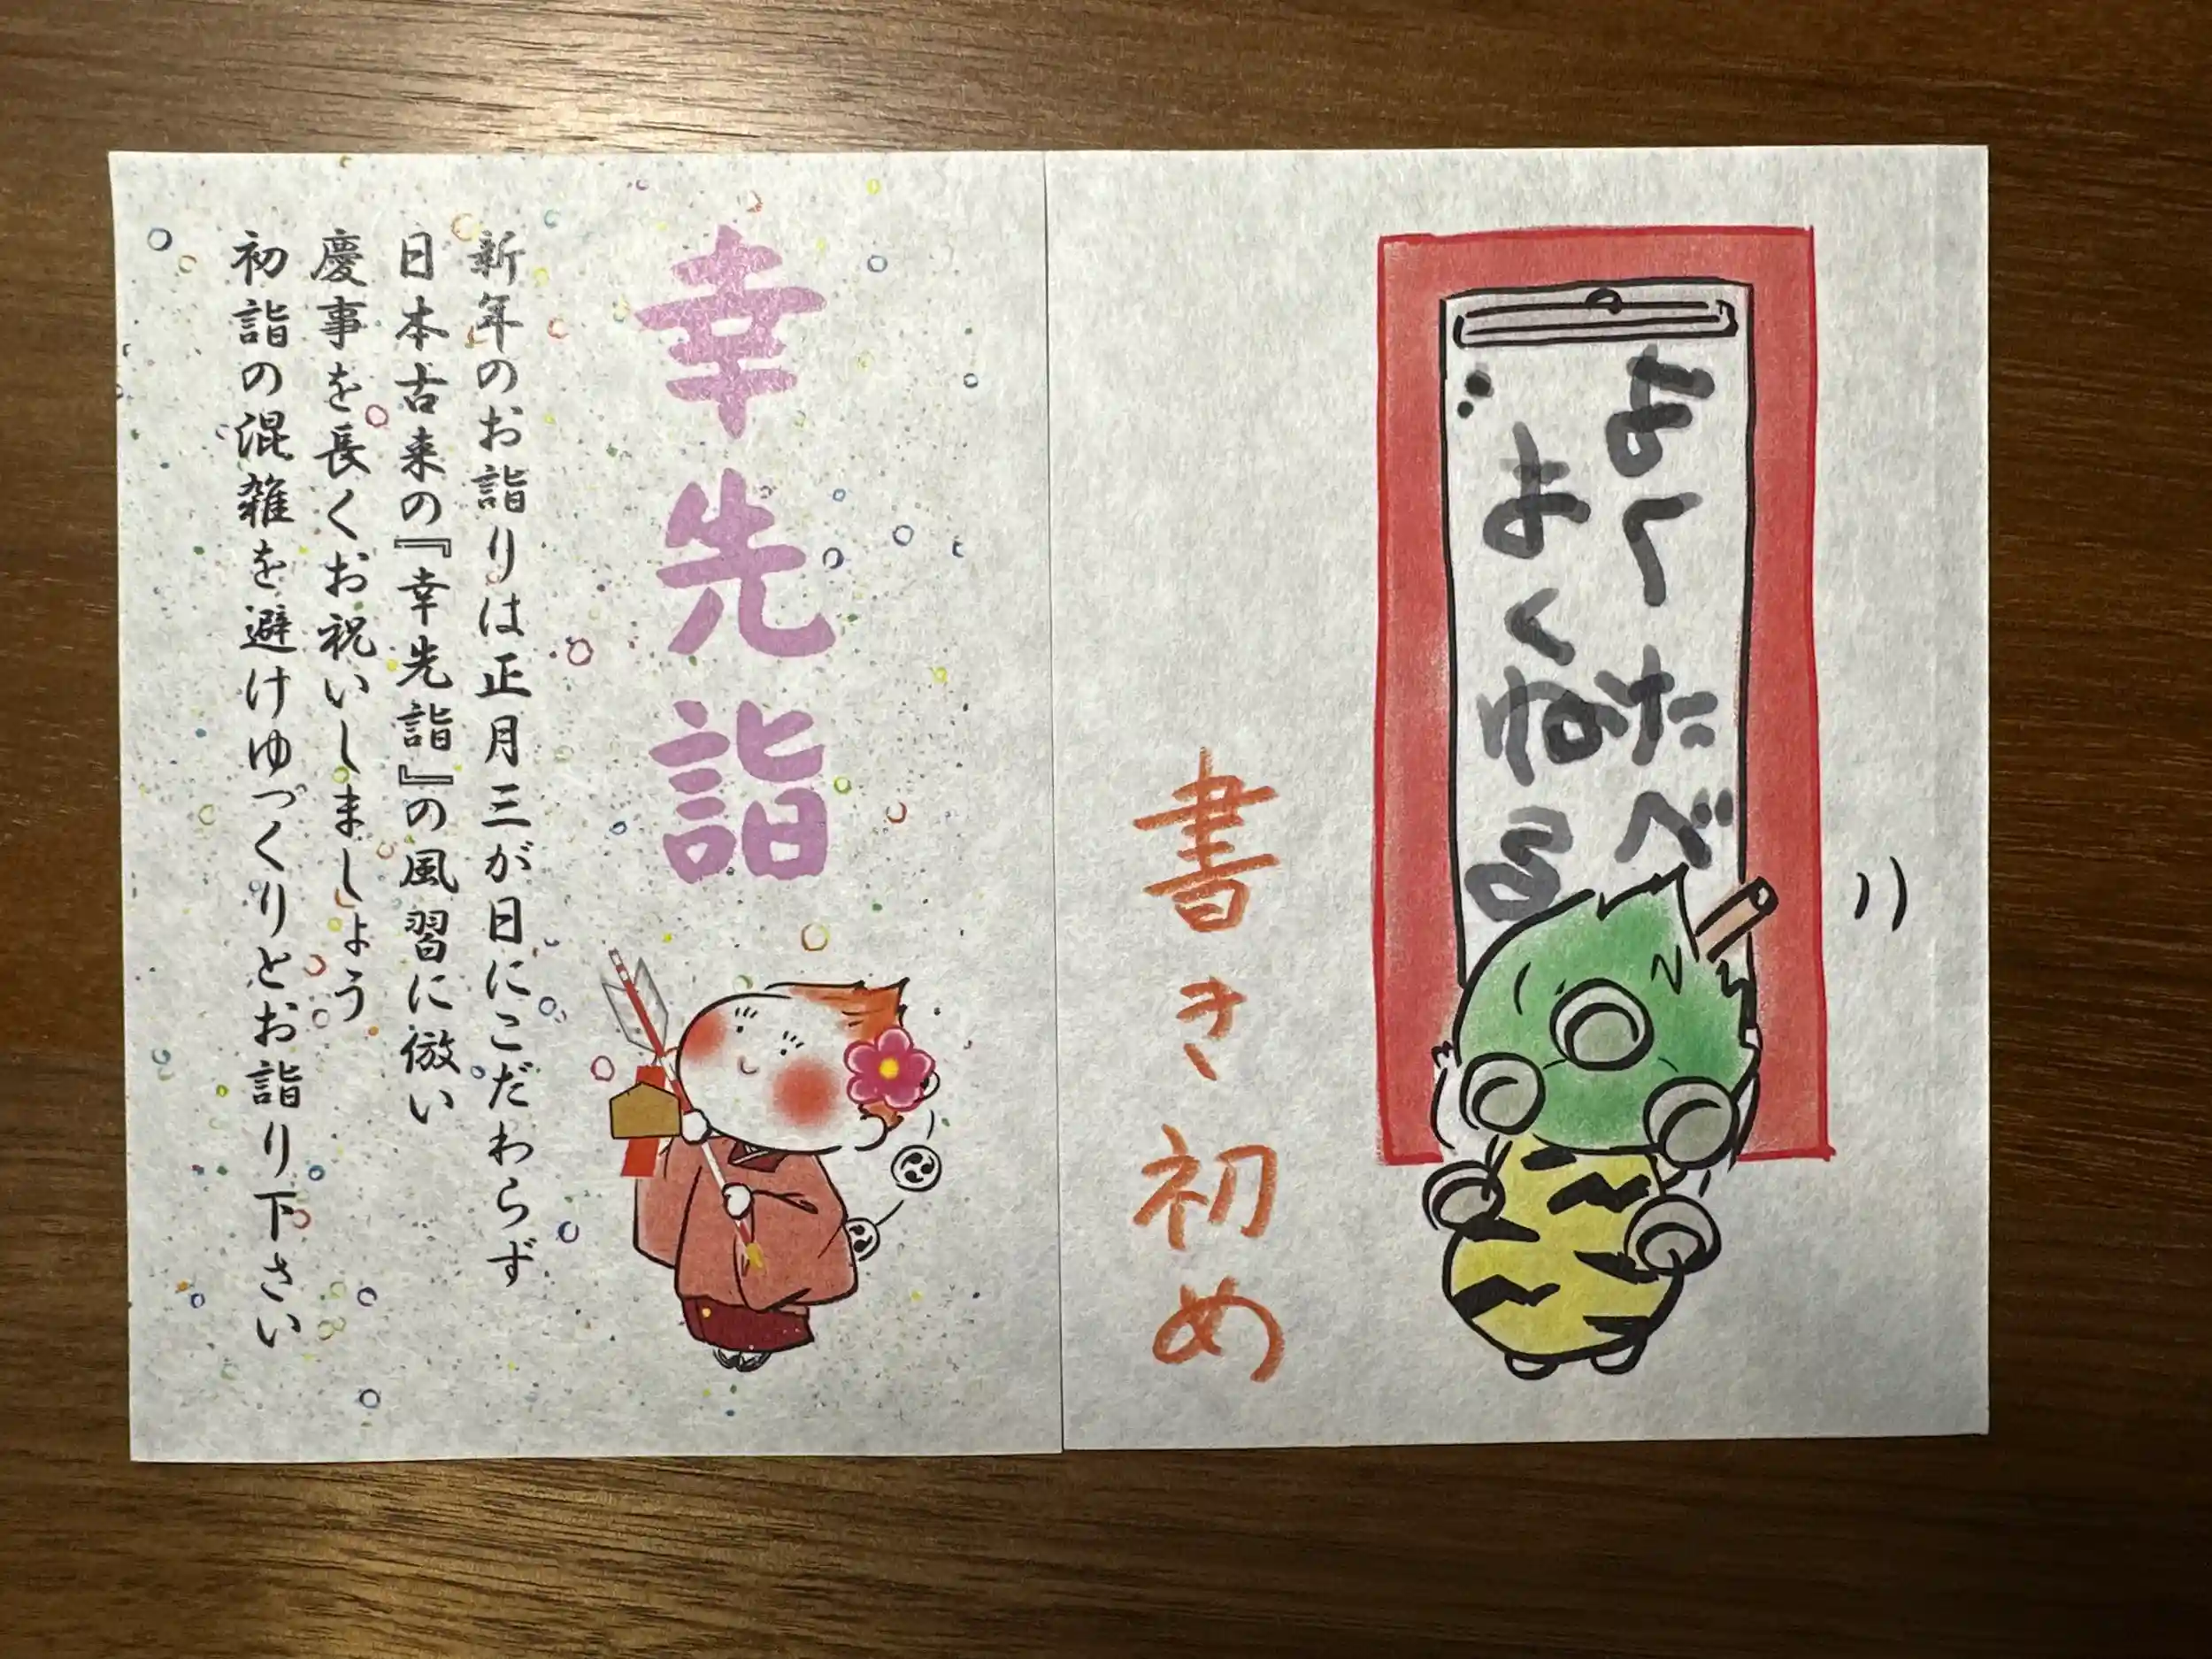 よくたべ
よくねる
書き初め
幸先詣
新年のお詣りは正月三が日にこだわらず
日本古来の『幸先詣』の風習に倣い
慶事を長くお祝いしましょう
初詣の混雑を避けゆっくりとお詣り下さい